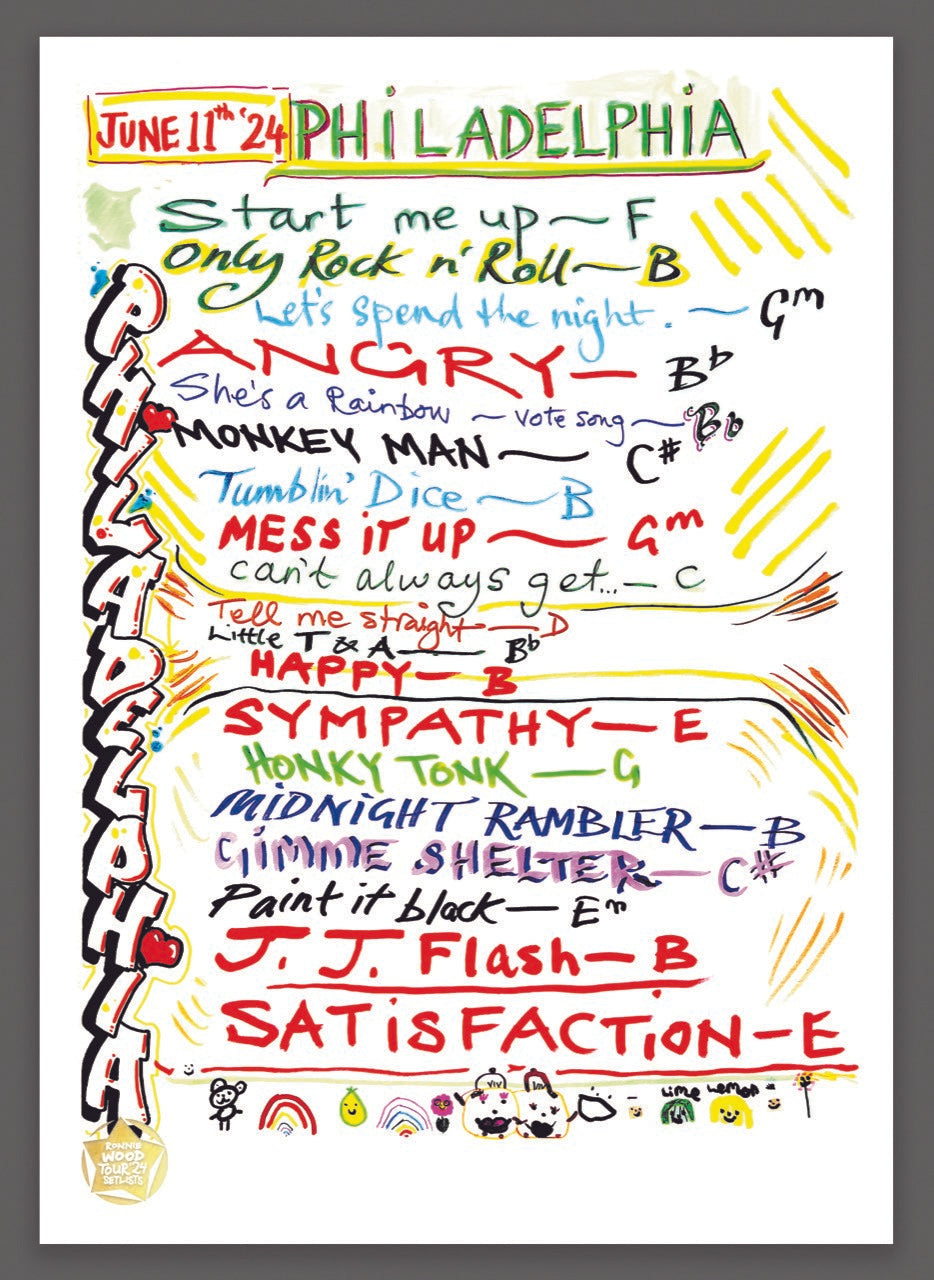 JUNE 11th '24 PHiLADELPHiA
Start me up ~ F
Only Rock n' Roll ~ B
Let's spend the night. ~ Gm
ANGRY — Bb
She's a Rainbow ~ vote song ~ Bb
MONKEY MAN ~ C#
Tumblin' Dice ~ B
MESS iT UP ~ Gm
can't always get... — C
Tell me straight — D
Little T & A — Bb
HAPPY — B
SYMPATHY — E
HONKY TONK — G
MiDNiGHT RAMBLER — B
GiMME SHELTER — C#
Paint it black — Em
J. J. Flash — B
SATiSFACTiON — E
PHILADELPHIA
VIV
Lime Lemon
RONNIE
WOOD
TOUR '24
SETLISTS